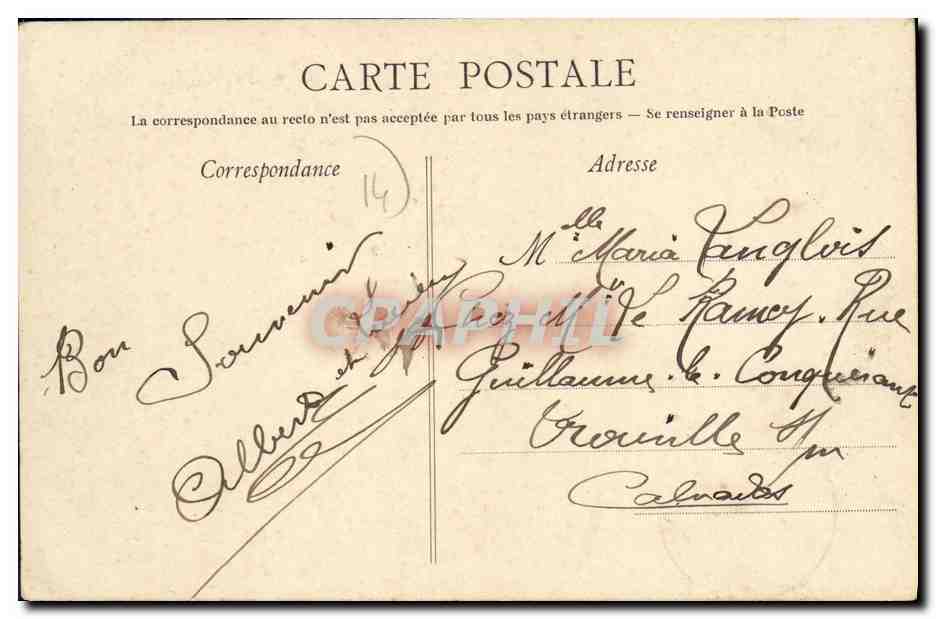 CARTE POSTALE
La correspondance au recto n'est pas acceptée par tous les pays étrangers — Se renseigner à la Poste
Correspondance
14
Bon Souvenir
Albert et
Adresse
Melle Maria Langlois
Chez Mr Le Ramey. Rue
Guillaume-le-Conquérant
Trouville s/m
Calvados
CPAPHIL